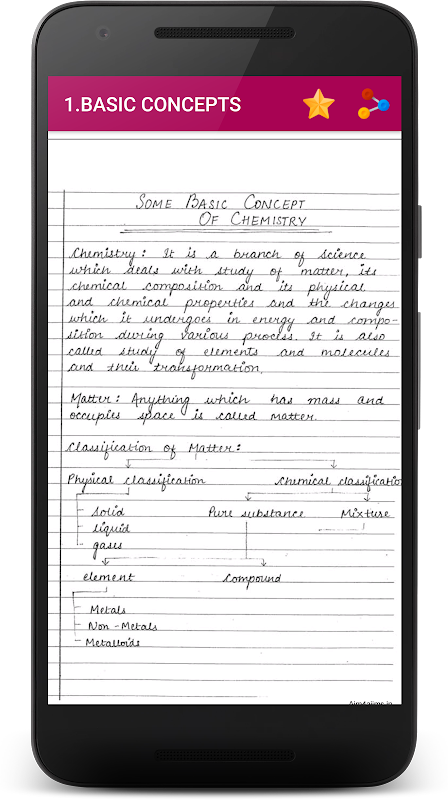 1.BASIC CONCEPTS
SOME BASIC CONCEPT
OF CHEMISTRY
Chemistry: It is a branch of science
which deals with study of matter, its
chemical composition and its physical
and chemical properties and the changes
which it undergoes in energy and compo-
sition during various process. It is also
called study of elements and molecules
and their transformation.
Matter: Anything which has mass and
occupies space is called matter.
Classification of Matter:
Physical classification Chemical classificatio
solid Pure substance Mixture
liquid
gases
element Compound
Metals
Non-Metals
Metalloids